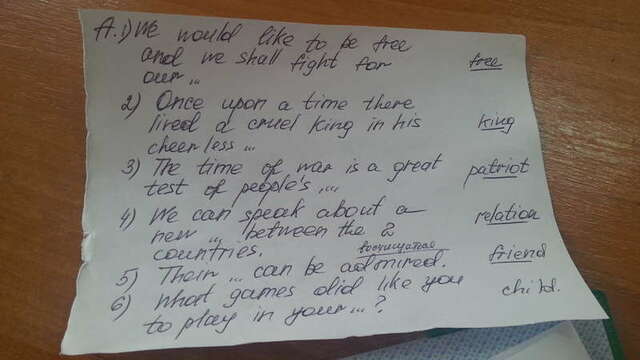 A. 1) We would like to be free
and we shall fight for
our ... free
2) Once upon a time there
lived a cruel king in his king
cheerless ...
3) The time of war is a great patriot
test of people's ...
4) We can speak about a relation
new ... between the 2
countries.
восхищаться
5) Their ... can be admired. friend
6) What games did like you child.
to play in your ... ?